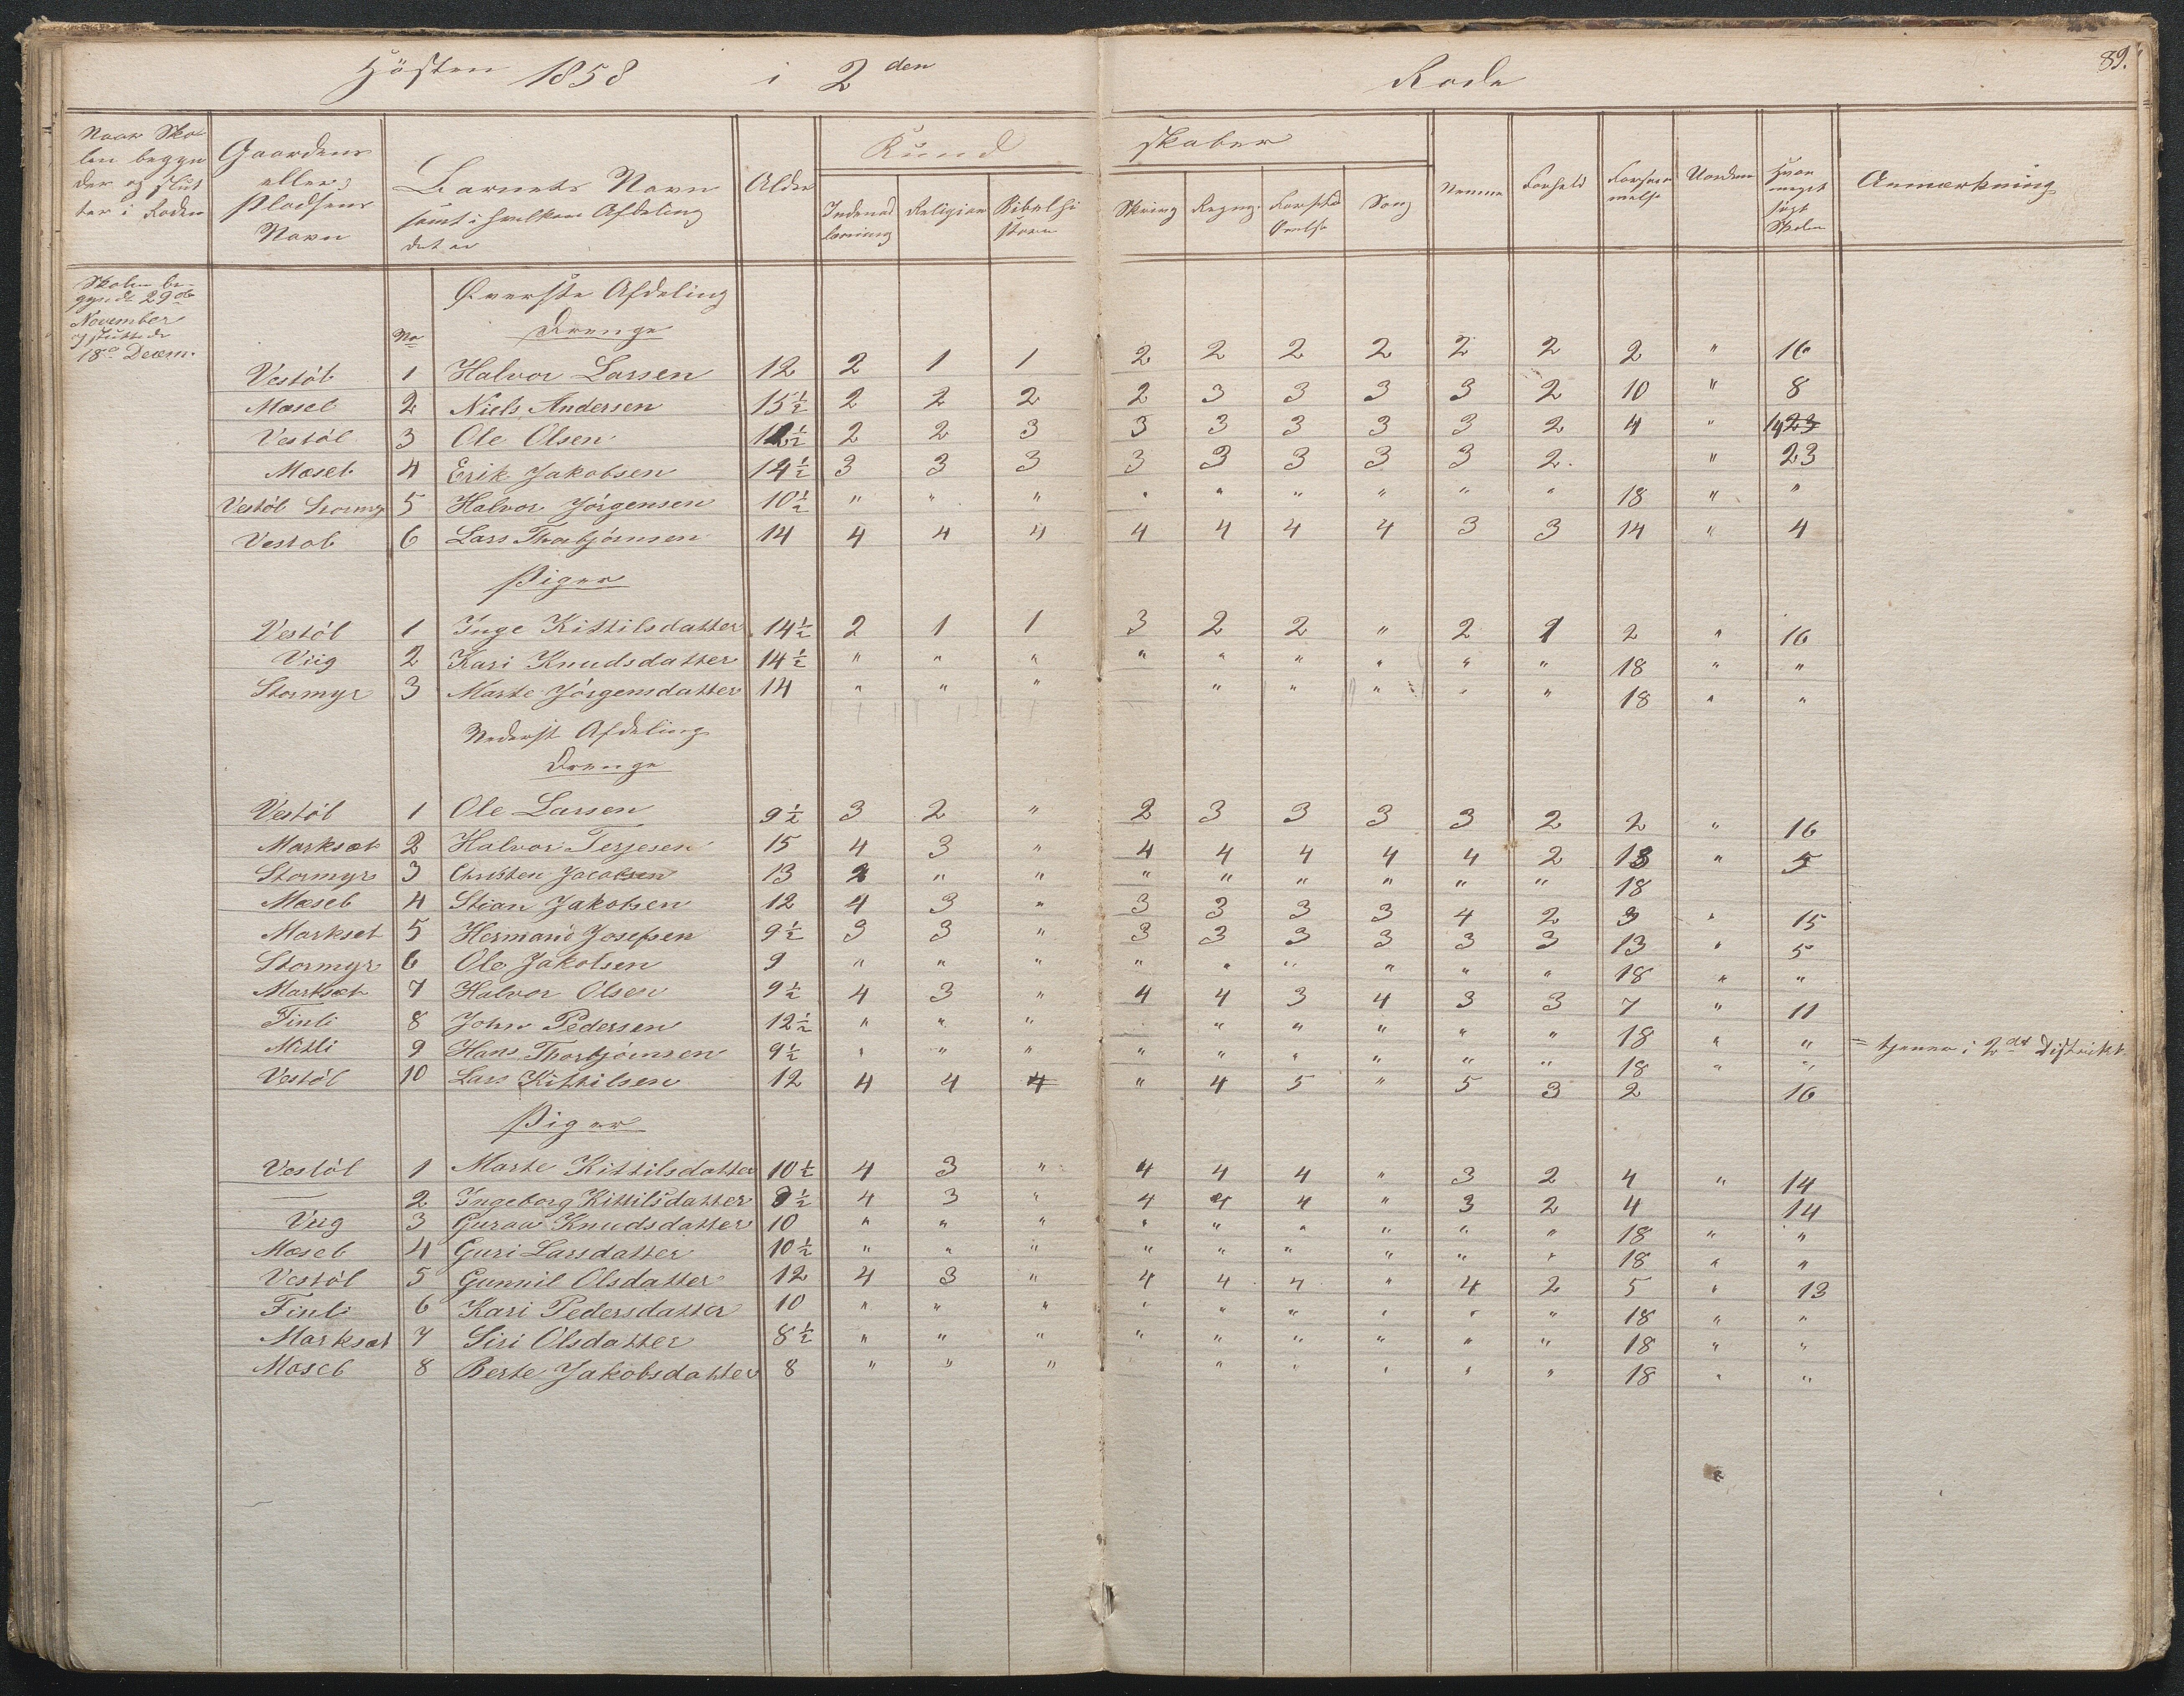 Hösten 1858 i 2den Rode
89.
Naar Sko-
len begyn
der og slut
ter i Roden
Gaardens
eller
Pladsens
Navn
Barnets Navn
samt i hvilken Afdeling
det er
Alder
Kund skaber
Indenad
læsning
Religion
Bibelhi
storie
Skrivng
Regng.
Forst.
Øvelse
Sang
Nemme
Forhold
Forsøm
melse
Uorden
Hvor
meget
søgt
Skolen
Anmærkning
Skolen be-
gyndt 29de
November
og sluttede
18de Decem.
No
Øverste Afdeling
Drenge
Vestöl 1 Halvor Larsen 12 2 1 1 2 2 2 2 2 2 2 " 16
Mæsel 2 Niels Andersen 15½ 2 2 2 2 3 3 3 3 2 10 " 8
Vestöl 3 Ole Olsen 12½ 2 2 3 3 3 3 3 3 2 4 " 14 23
Mæsel 4 Erik Jakobsen 14½ 3 3 3 3 3 3 3 3 2. " 23
Vestöl Stormyr 5 Halvor Jörgensen 10½ " " " " " " " " " 18 " "
Vestöl 6 Lars Thorbjörnsen 14 4 4 4 4 4 4 4 3 3 14 " 4
Piger
Vestöl 1 Inge Kittilsdatter 14½ 2 1 1 3 2 2 " 2 1 2 " 16
Viig 2 Kari Knudsdatter 14½ " " " " " " " " " 18 " "
Stormyr 3 Marte Jörgensdatter 14 " " " " " " " " 18 " "
Nederst Afdeling
Drenge
Vestöl 1 Ole Larsen 9½ 3 2 " 2 3 3 3 3 2 2 " 16
Marksæt 2 Halvor Terjesen 15 4 3 " 4 4 4 4 4 2 13 " 5
Stormyr 3 Christen Jacobsen 13 " " " " " " " " " 18
Mæsel 4 Stian Jakobsen 12 4 3 " 3 3 3 3 4 2 3 " 15
Marksæt 5 Hermand Josefsen 9½ 3 3 " 3 3 3 3 3 3 13 " 5
Stormyr 6 Ole Jakobsen 9 " " " " " " " " " 18 " "
Marksæt 7 Halvor Olsen 9½ 4 3 " 4 4 3 4 3 3 7 " 11
Finli 8 John Pedersen 12½ " " " " " " " " 18 " "
Mitli 9 Hans Thorbjörnsen 9½ " " " " " " " " " 18 " " = tjener i 2det Distrikt
Vestöl 10 Lars Kittilsen 12 4 4 4 " 4 5 " 5 3 2 16
Piger
Vestöl 1 Marte Kittilsdatter 10½ 4 3 " 4 4 4 " 3 2 4 " 14
— 2 Ingeborg Kittilsdatter 8½ 4 3 " 4 4 4 " 3 2 4 14
Viig 3 Guroe Knudsdatter 10 " " " " " " " " " 18 " "
Mæsel 4 Guri Larsdatter 10½ " " " " " " " " " 18 " "
Vestöl 5 Gunnil Olsdatter 12 4 3 " 4 4 4 " 4 2 5 " 13
Finli 6 Kari Pedersdatter 10 " " " " " " " " " 18 " "
Marksæt 7 Siri Olsdatter 8½ " " " " " " " " " 18 " "
Mæsel 8 Berte Jakobsdatter 8 " " " " " " " " 18 " "